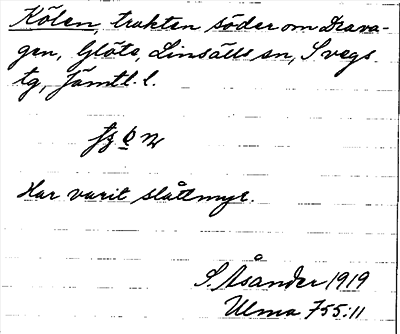 Kölen, trakten söder om Drava-
gen, Glöte, Linsälls sn, Svegs
tg, Jämtl. l.
Har varit slåttmyr.
S. Åsander 1919
Ulma 755:11